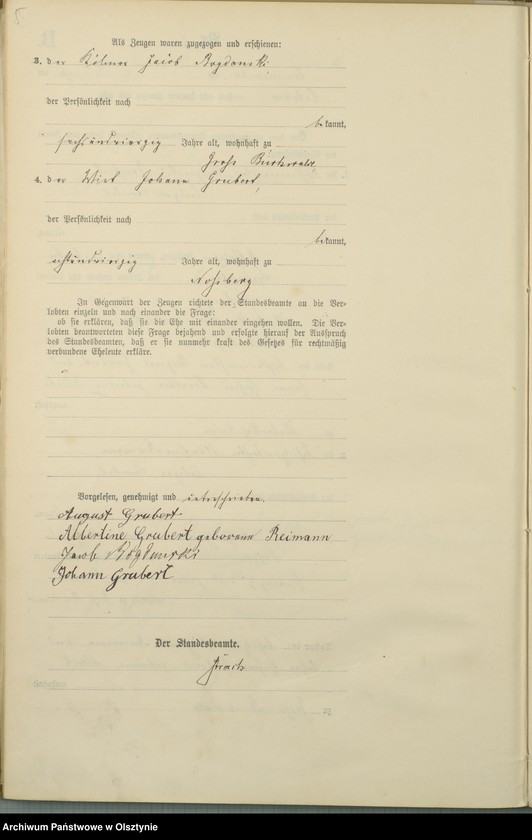 Als Zeugen waren zugezogen und erschienen:
3. der Kölmer Jacob Bogdanski,
der Persönlichkeit nach
bekannt,
sechsundvierzig Jahre alt, wohnhaft zu
Groß
4. der Wirt Johann Grubert,
der Persönlichkeit nach
bekannt,
achtundvierzig Jahre alt, wohnhaft zu
In Gegenwart der Zeugen richtete der Standesbeamte an die Ver-
lobten einzeln und nach einander die Frage:
ob sie erklären, daß sie die Ehe mit einander eingehen wollen. Die Ver-
lobten beantworteten diese Frage bejahend und erfolgte hierauf der Ausspruch
des Standesbeamten, daß er sie nunmehr kraft des Gesetzes für rechtmäßig
verbundene Eheleute erkläre.
Vorgelesen, genehmigt und unterschrieben.
August Grubert
Albertine Grubert geborene Reimann
Jacob Bogdanski
Johann Grubert
Der Standesbeamte.
Archiwum Państwowe w Olsztynie